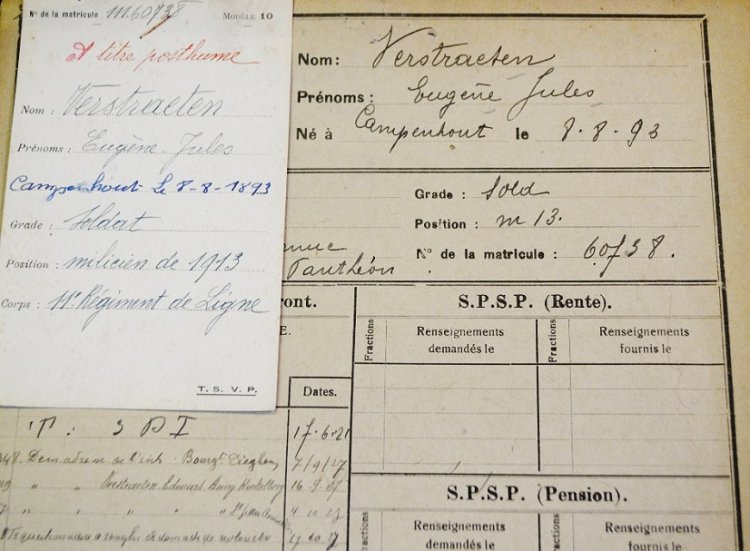 Nº de la matricule : m.60738 MODÈLE 10
A titre posthume
Nom : Verstraeten
Prénoms : Eugène Jules
Campenhout Le 8-8-1893
Grade : Soldat
Position : milicien de 1913
Corps : 11e Régiment de Ligne
T. S. V. P.
Nom : Verstraeten
Prénoms : Eugène Jules
Né à Campenhout le 8.8.93
Grade : sold
Position : m 13.
Nº de la matricule : 60738.
Panthéon
S.P.S.P. (Rente).
Fractions
Renseignements
demandés le
Fractions
Renseignements
fournis le
Dates.
17.6.21
de l'int. Bourgt. Dieghem 7/9/27
" " Verstraeten Edouard Bourg Koekelberg 16.9.27
" " " 4.10.27
S.P.S.P. (Pension).
Fractions
Renseignements
demandés le
Fractions
Renseignements
fournis le